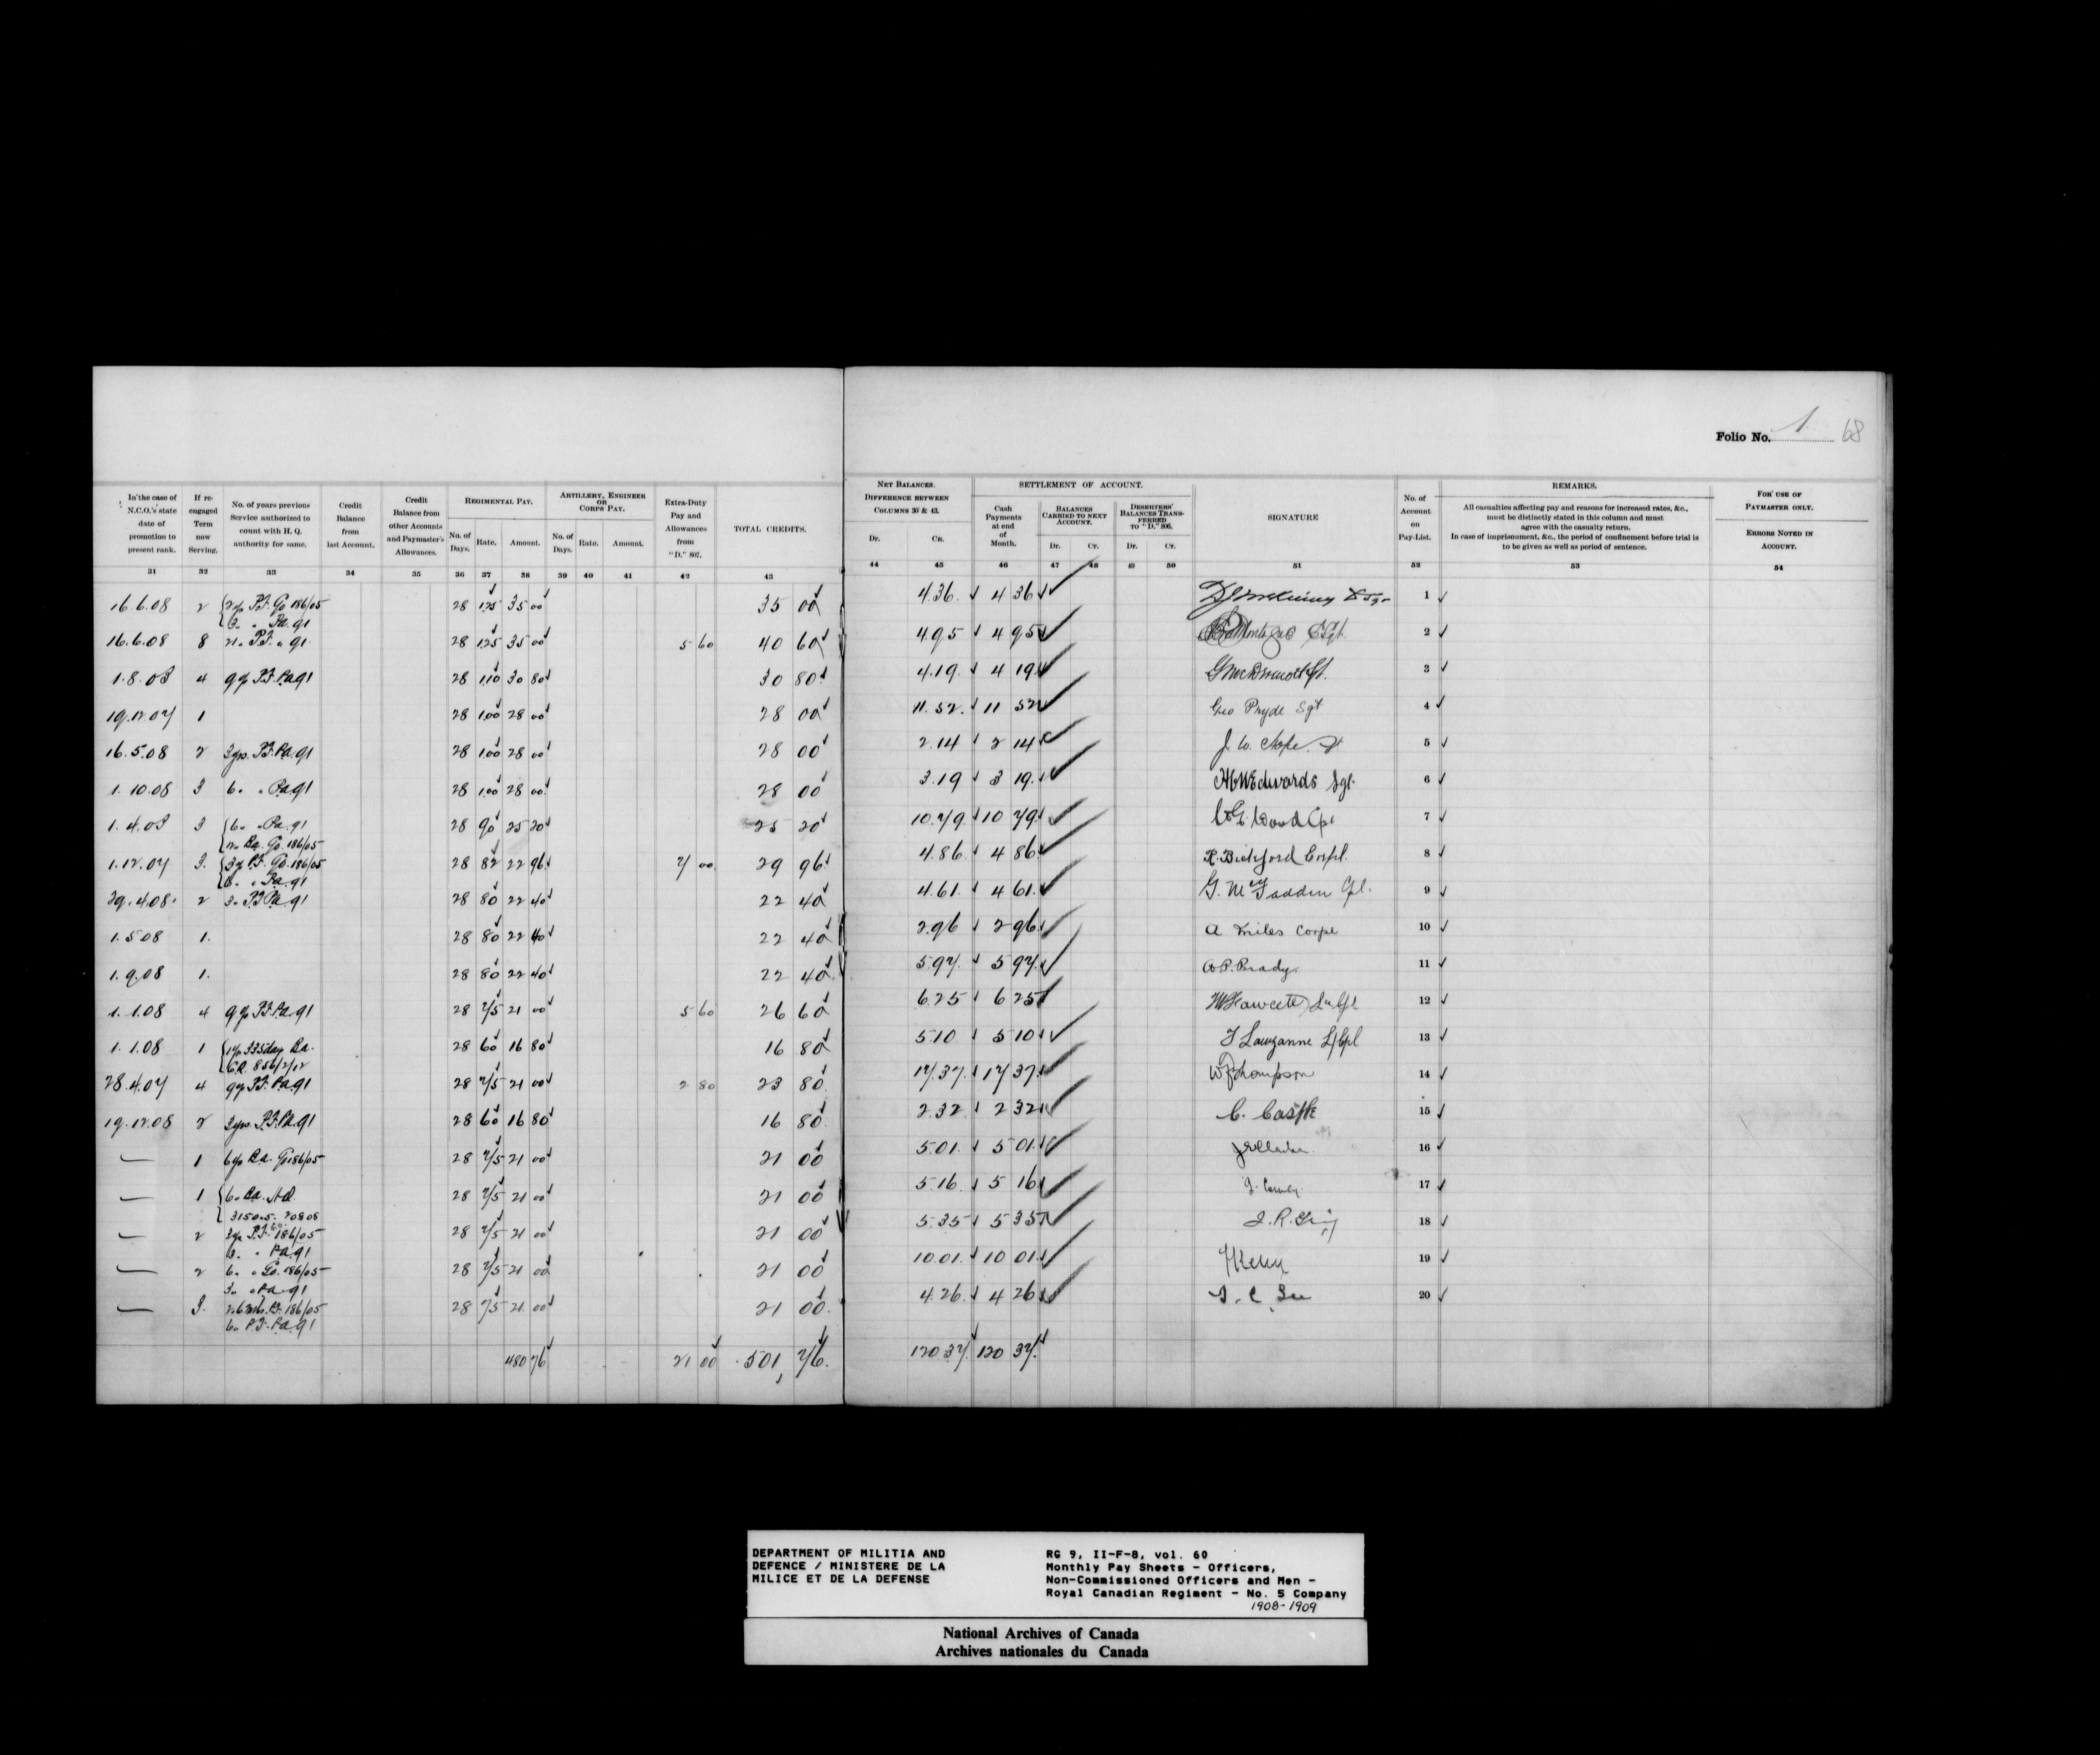 Folio No. 1. 68
In the case of N.C.O.'s state date of promotion to present rank. If re-engaged Term now Serving. No. of years previous Service authorized to count with H. Q. authority for same. Credit Balance from last Account. Credit Balance from other Accounts and Paymaster's Allowances. REGIMENTAL PAY. No. of Days. Rate. Amount. ARTILLERY, ENGINEER OR CORPS PAY. No. of Days. Rate. Amount. Extra-Duty Pay and Allowances from "D." 807. TOTAL CREDITS.
NET BALANCES. DIFFERENCE BETWEEN COLUMNS 30 & 43. Dr. Cr. SETTLEMENT OF ACCOUNT. Cash Payments at end of Month. BALANCES CARRIED TO NEXT ACCOUNT. Dr. Cr. DESERTERS' BALANCES TRANSFERRED TO "D." 806. Dr. Cr. SIGNATURE No. of Account on Pay-List. REMARKS. All casualties affecting pay and reasons for increased rates, &c., must be distinctly stated in this column and must agree with the casualty return. In case of imprisonment, &c., the period of confinement before trial is to be given as well as period of sentence. FOR USE OF PAYMASTER ONLY. ERRORS NOTED IN ACCOUNT.
31 32 33 34 35 36 37 38 39 40 41 42 43 44 45 46 47 48 49 50 51 52 53 54
16.6.08 2 P.F. Go 186/05 28 1.25 35 00 35 00 4.36 4 36 1
3 " " Pa. 91
16.6.08 8 P.F. " 91 28 1.25 35 00 5 60 40 60 4.95 4 95 2
1.8.03 4 9 P.F. Pa 91 28 1.10 30 80 30 80 4.19 4 19 3
19.12.07 1 28 1.00 28 00 28 00 11.52 11 52 Geo Pryde Sgt 4
16.5.08 2 3 yrs. P.F. Pa. 91 28 1.00 28 00 28 00 2.14 2 14 J. W. Hope 5
1.10.08 3 6 " " Pa 91 28 1.00 28 00 28 00 3.19 3 19 Edwards Sgt. 6
1.4.03 3 6 " " Pa. 91 28 90 25 20 25 20 10.79 10 79 Wood Cpl 7
Ba. Go. 186/05
1.12.07 3. 3 P.F. Go. 186/05 28 82 22 96 7 00 29 96 4.86 4 86 R. Bickford Corpl. 8
6 " " Pa. 91
29.4.08 2 3 " P.F. Pa. 91 28 80 22 40 22 40 4.61 4 61 G. McFadden Cpl. 9
1.5.08 1. 28 80 22 40 22 40 2.96 2 96 A Miles Corpl 10
1.9.08 1. 28 80 22 40 22 40 5.97 5 97 11
1.1.08 4 9 P.F. Pa. 91 28 75 21 00 5 60 26 60 6.25 6 25 Fawcett 12
1.1.08 1 335 day Ba. 28 60 16 80 16 80 5.10 5 10 Lauzanne L/Cpl 13
28.4.07 4 9 P.F. Pa. 91 28 75 21 00 2 80 23 80 17.37 17 37 Thompson 14
19.12.08 2 3 yrs. P.F. Pa. 91 28 60 16 80 16 80 2.32 2 32 C. Castle 15
— 1 6 Ba. Go 186/05 28 75 21 00 21 00 5.01 5 01 16
— 1 6 " Ba. 28 75 21 00 21 00 5.16 5 16 17
— 2 3 P.F. 186/05 28 75 21 00 21 00 5.35 5 35 18
3 " " Pa. 91
— 2 6 " " Go. 186/05 28 75 21 00 21 00 10.01 10 01 19
3 " " Pa 91
— 3. P.F. 186/05 28 75 21 00 21 00 4.26 4 26 20
6 " P.F. Pa. 91
480 76 21 00 501 76 120 37 120 37
DEPARTMENT OF MILITIA AND
DEFENCE / MINISTERE DE LA
MILICE ET DE LA DEFENSE
RG 9, II-F-8, vol. 60
Monthly Pay Sheets - Officers,
Non-Commissioned Officers and Men -
Royal Canadian Regiment - No. 5 Company
1908-1909
National Archives of Canada
Archives nationales du Canada